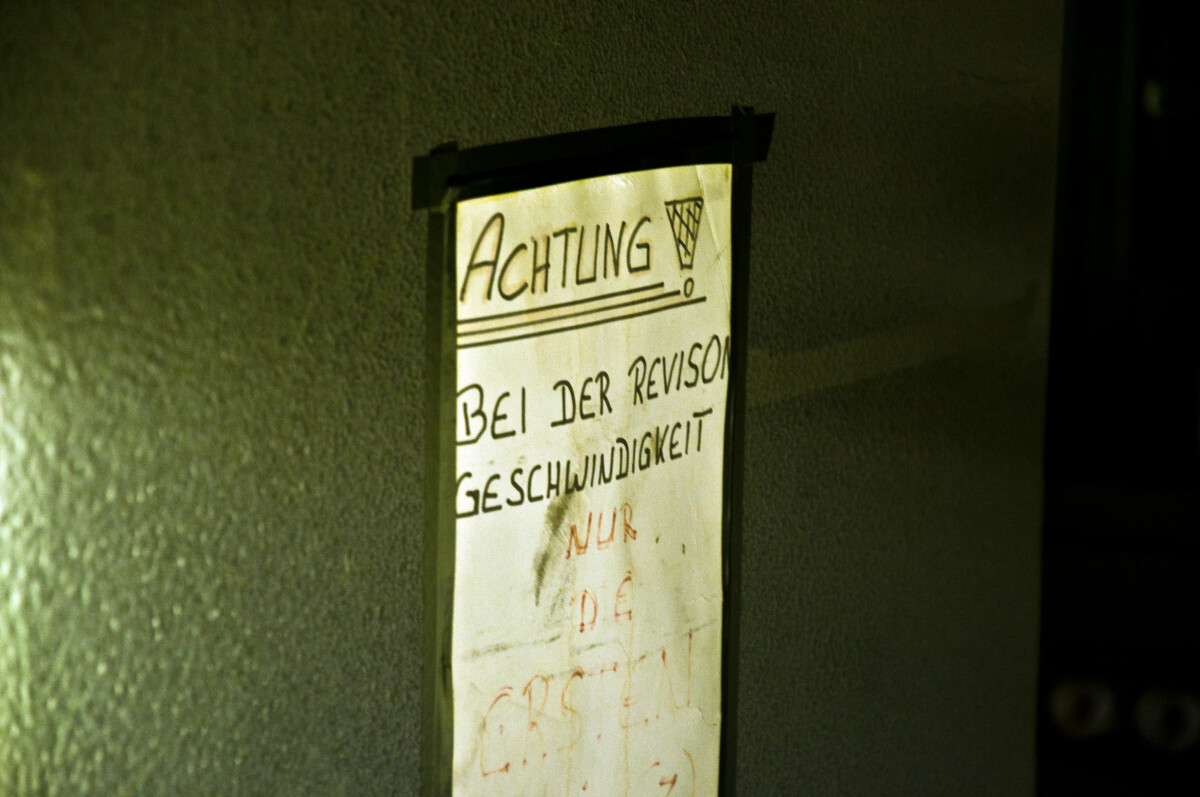 ACHTUNG!
BEI DER REVISON
GESCHWINDIGKEIT
NUR
DIE
ERSTEN